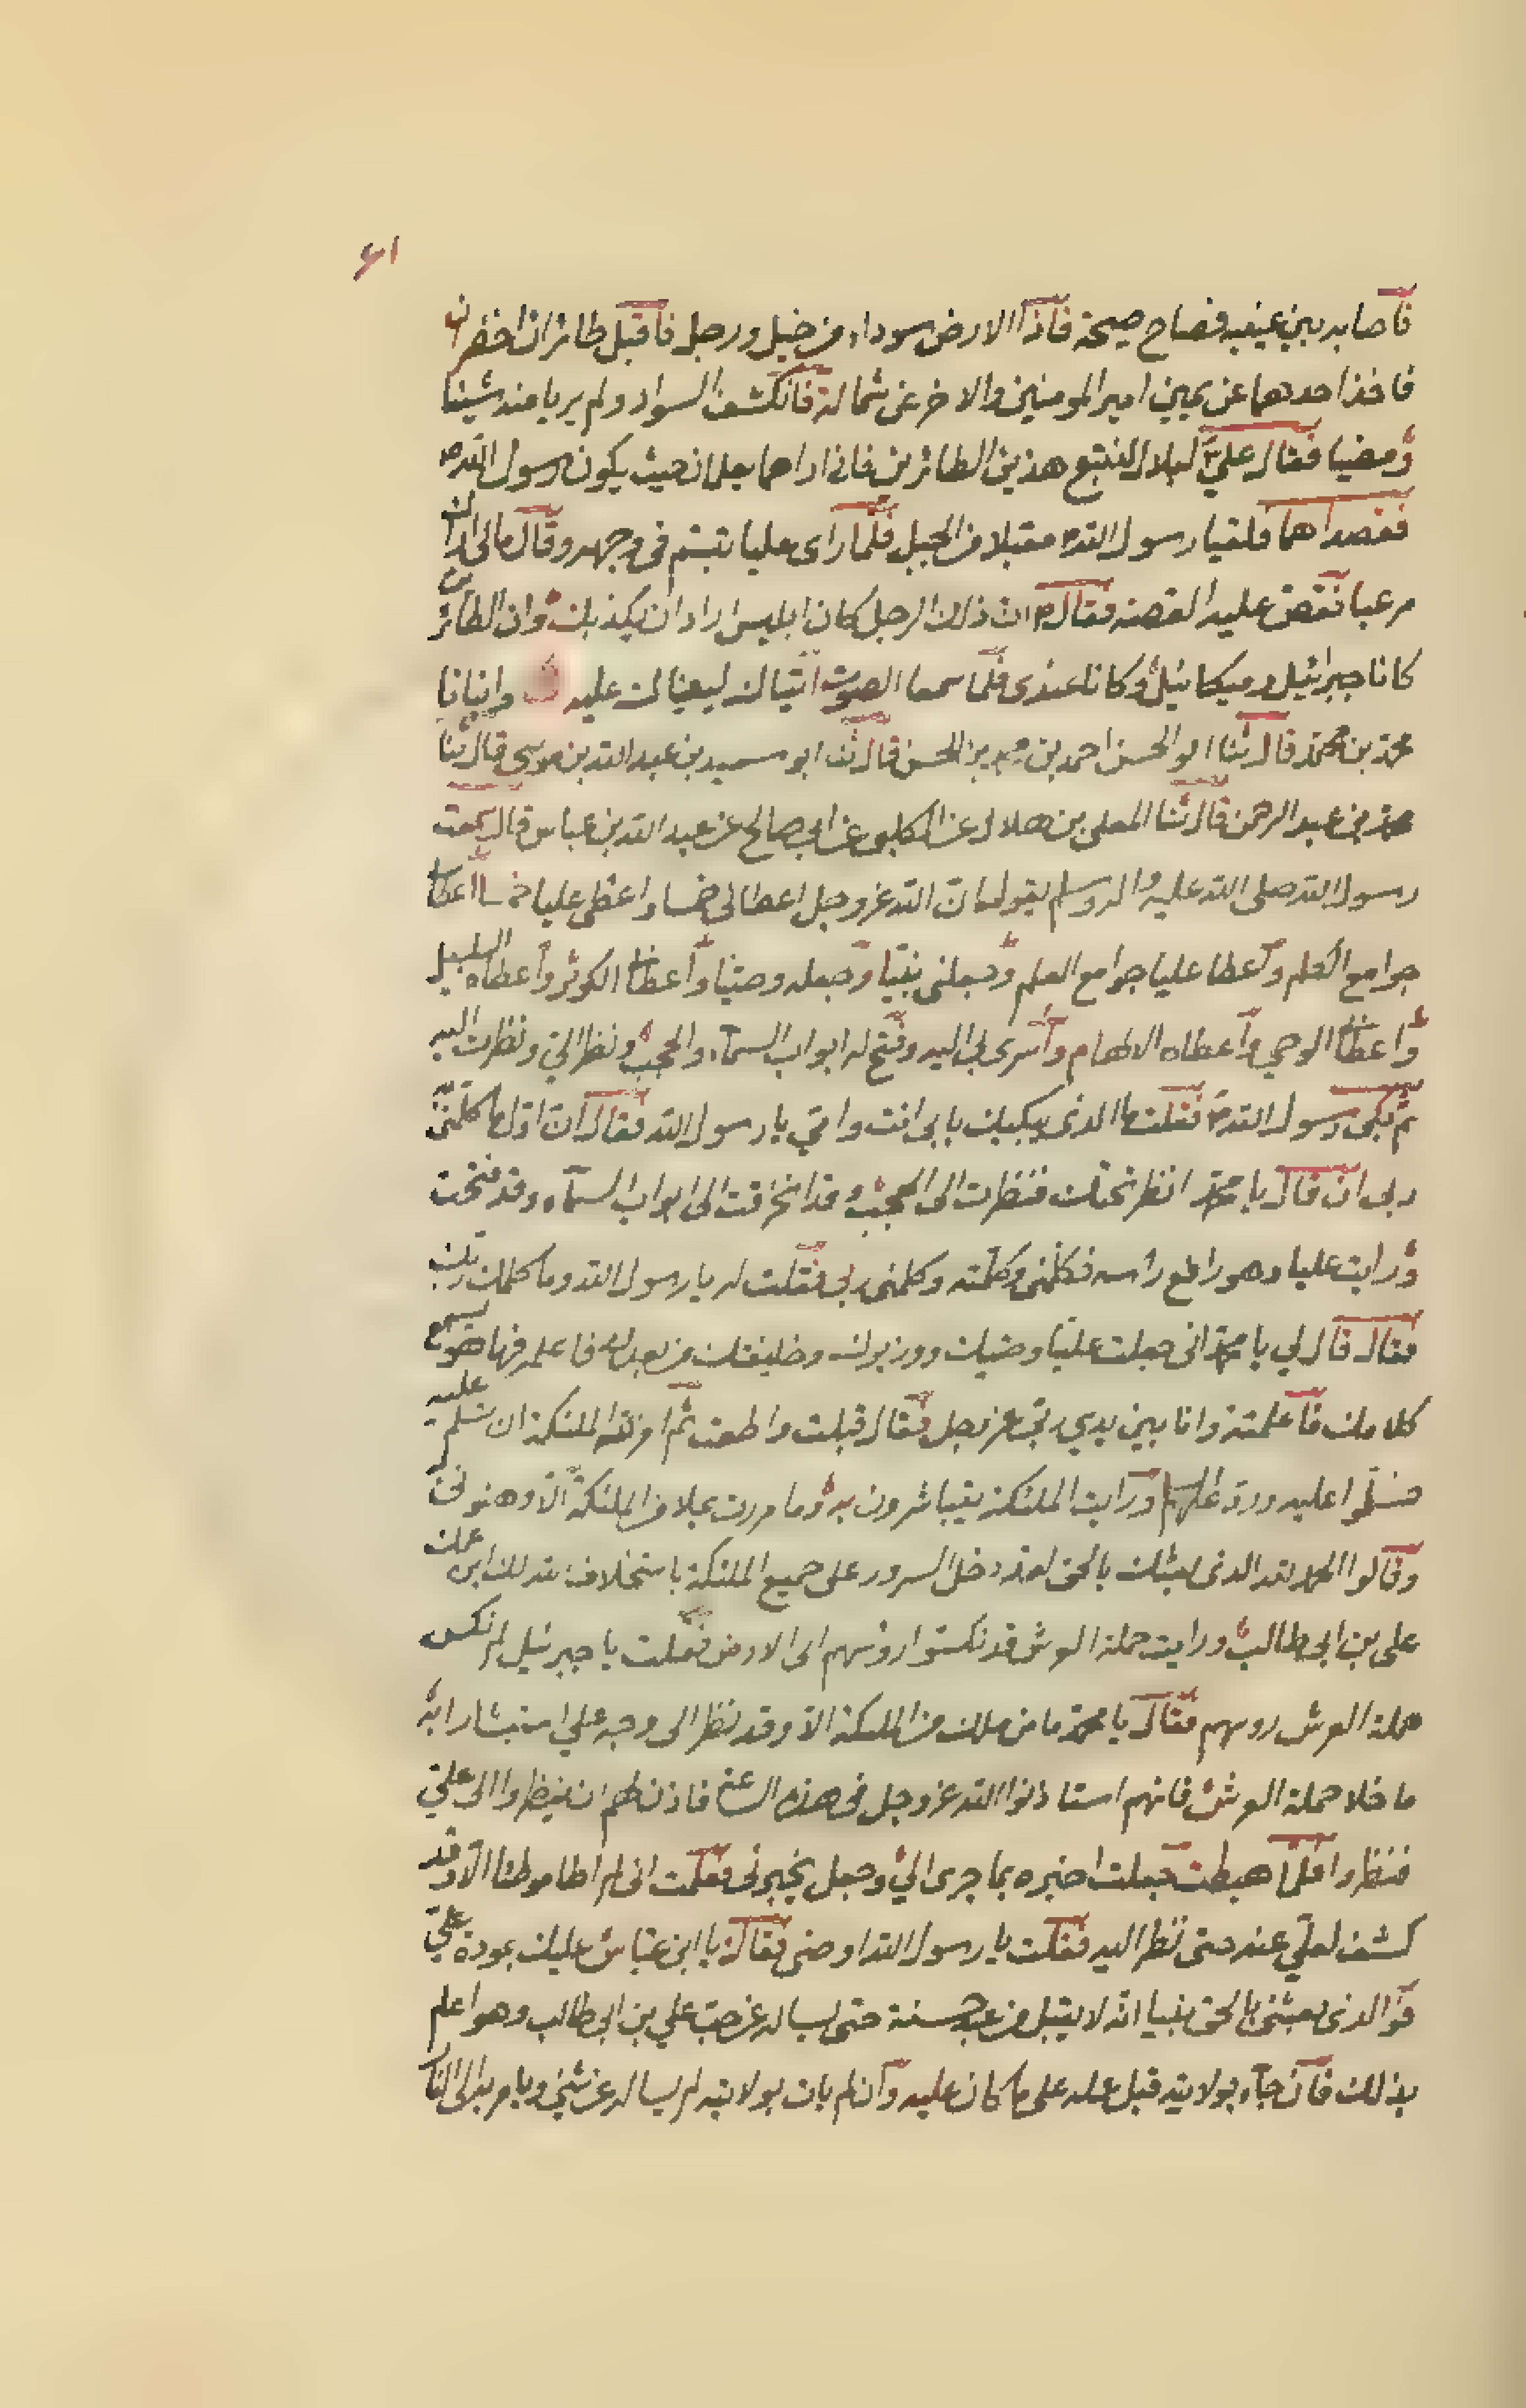 ٦١
فاصابه بين عينيه فصاح صيحة فاذا الارض سوداء من خيل ورجل فاقبل طائران اخضران
فاخذ احدهما عن يمين امير المومنين والاخر عن شماله فانكشف السواد ولم يريا منه شيئا
ومضيا فقال علي لبلال لنتبع هذين الطائرين فاني اراهما يعلمان حيث يكون رسول الله
فقصداهما فلقيا رسول الله مقبلا من الجبل فلما راى عليا تبسم في وجهه وقال مالى اراك
مرعبا فقص عليه القصة فقال ان ذلك الرجل كان ابليس اراد ان يكيد بك وان الطائرين
كانا جبرائيل وميكائيل وكانا عندى فلما سمعا الصوت اتياك ليعيناك عليه وانبانا
محمد بن محمد قال ثنا ابو الحسن احمد بن محمد بن الحسن قال ثنا ابو سعيد بن عبد الله بن موسى قال ثنا
محمد بن عبد الرحمن قال ثنا المعلى بن هلال عن الكلبى عن ابى صالح عن عبد الله بن عباس قال سمعت
رسول الله صلى الله عليه واله وسلم يقول ان الله عز وجل اعطانى خمسا واعطى عليا خمسا اعطانى
جوامع الكلم واعطا عليا جوامع العلم وجعلنى نبيا وجعله وصيا واعطانى الكوثر واعطاه السلسبيل
واعطانى الوحي واعطاه الالهام واسرى بى اليه وفتح له ابواب السماء والحجب ونظر الي ونظرت اليه
ثم بكى رسول الله فقلت ما الذى يبكيك بابى انت وامي يا رسول الله فقال ان اول ما كلمنى
ربى ان قال يا محمد انظر تحتك فنظرت الى الحجب وقد انخرقت الى ابواب السماء وقد فتحت
ورايت عليا وهو رافع راسه فكلمنى وكلمته وكلمنى ربى فقلت له يا رسول الله وما كلمك ربك
فقال قال لي يا محمد انى جعلت عليا وصيك ووزيرك وخليفتك من بعدك فاعلمه فها هو يسمع
كلامك فاعلمته وانا بين يدي ربي عز وجل فقال قبلت واطعت ثم امر الله الملئكة ان تسلم عليه
فسلموا عليه ورد عليهم ورايت الملئكة يتباشرون به وما مررت بملا من الملئكة الا وهنونى
وقالوا الحمد لله الذى بعثك بالحق لقد دخل السرور على جميع الملئكة باستخلاف الله لك ابن عمك
على بن ابى طالب ورايت حملة العرش قد نكسوا رؤسهم الى الارض فقلت يا جبرئيل لم نكس
حملة العرش روسهم فقال يا محمد ما من ملك من الملئكة الا وقد نظر الى وجه علي استبشارا به
ما خلا حملة العرش فانهم استاذنوا الله عز وجل فى هذه الساعة فاذن لهم ان ينظروا الى علي
فنظروا فلما هبطت جعلت اخبره بما جرى الي وجعل يخبرنى فعلمت انى لم اطا موطئا الا وقد
كشف لعلي عنه حتى نظر اليه فقلت يا رسول الله اوصنى فقال يا ابن عباس عليك بمودة علي
فو الذى بعثنى بالحق نبيا انه لا يقبل من عبد حسنة حتى يساله عن حب علي بن ابى طالب وهو اعلم
بذلك فان جاء بولايته قبل عمله على ما كان عليه وان لم يات بولايته لم يساله عن شئ ويامر به الى النار